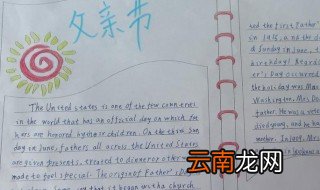 父亲节
The United states is one of the few countries
in the world that has an official day on which fat
hers are honored by their children. On the third Sun
day in June, fathers all across the United States
are given presents, treated to dinner or other
made to feel special. The origin of Father'
that it began with a church
ted the first Father'
in 1915, and the
d Sunday in June,
birthday! Regard
r's Day occurred
the holiday was
Washington. Mrs
father. He was a
died young, and he
mother. In 1909, Mrs
云南龙网